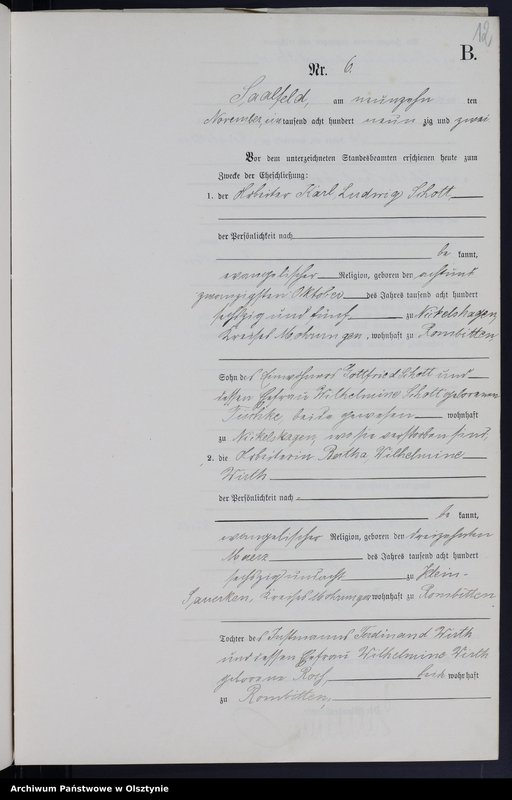 12
B.
Nr. 6.
Saalfeld, am neunzehn ten
November, ein tausend acht hundert neun zig und zwei
Vor dem unterzeichneten Standesbeamten erschienen heute zum
Zwecke der Eheschließung:
1. der Arbeiter Karl Ludwig Schott
der Persönlichkeit nach
be kannt,
evangelischer Religion, geboren den achtund
zwanzigsten Oktober des Jahres tausend acht hundert
sechzig und fünf zu Nickelshagen,
Kreises Mohrungen, wohnhaft zu Rombitten
Sohn des Einwohners Gottfried Schott und
dessen Ehefrau Wilhelmine Schott geborenen
beide gewesen wohnhaft
zu Nickelshagen, wo sie verstorben sind,
2. die Arbeiterin Wilhelmine
Wirth
der Persönlichkeit nach
be kannt,
evangelischer Religion, geboren den dreizehnten
Maerz des Jahres tausend acht hundert
sechzig und acht zu Klein-
Sauerken, Kreises Mohrungen wohnhaft zu Rombitten
Tochter des Instmanns Ferdinand Wirth
und dessen Ehefrau Wilhelmine Wirth
geborene beide wohnhaft
zu Rombitten,
Archiwum Państwowe w Olsztynie